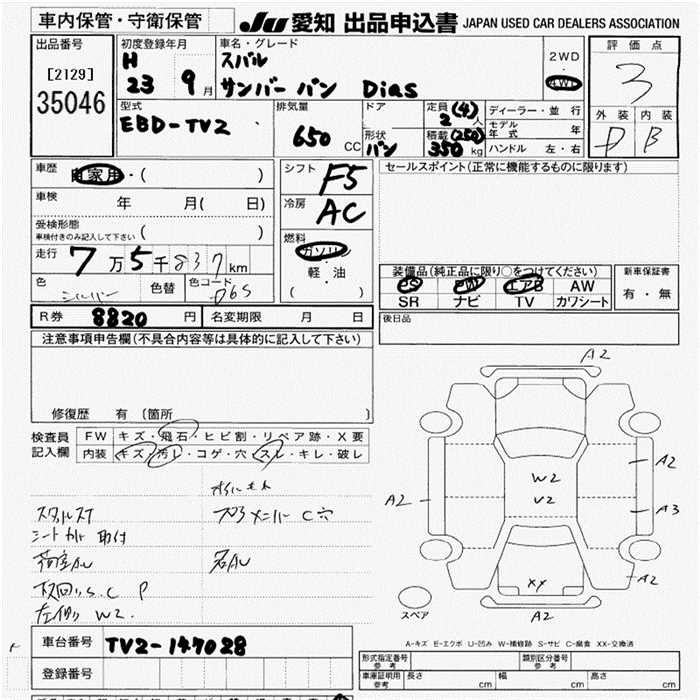 車内保管・守衛保管
JU 愛知 出品申込書 JAPAN USED CAR DEALERS ASSOCIATION
出品番号
[2129]
35046
初度登録年月
H
23 9 月
車名・グレード
スバル
サンバー バン Dias
2WD
・
4WD
評価点
3
外装 内装
D B
型式
EBD-TV2
排気量
650 CC
ドア
形状
バン
定員 (4)
2 人
積載 (250)
350 kg
ディーラー・並行
モデル年式 年
ハンドル 左・右
車歴
自家用・( )
車検 年 月( 日)
受検形態
車検付きのみ記入して下さい ( )
走行 7 万 5 千 837 km
色 シルバー 色替 色コード D6S
シフト F5
冷房 AC
燃料
ガソリン
軽・油
( )
セールスポイント(正常に機能するものに限ります)
装備品(純正品に限り○をつけてください)
PS PW エアB AW
SR ナビ TV カワシート
新車保証書
有・無
後日品
R券 8820 円 名変期限 月 日
注意事項申告欄(不具合内容等は具体的に記入して下さい)
修復歴 有 〔箇所 〕
検査員
記入欄
FW キズ・飛石・ヒビ割・リペア跡・X要
内装 キズ・汚レ・コゲ・穴・スレ・キレ・破レ
シートカット 取付
C穴
左 W2.
A2
A2
A2
A3
A2
W2
U2
XY
A2
スペア
A-キズ E-エクボ U-凹み W-補修跡 S-サビ C-腐食 XX-交換済
車台番号 TV2-147028
登録番号
形式指定番号
参考
類別区分番号
参考
車庫証明用
参考
長さ cm
幅 cm
高さ cm